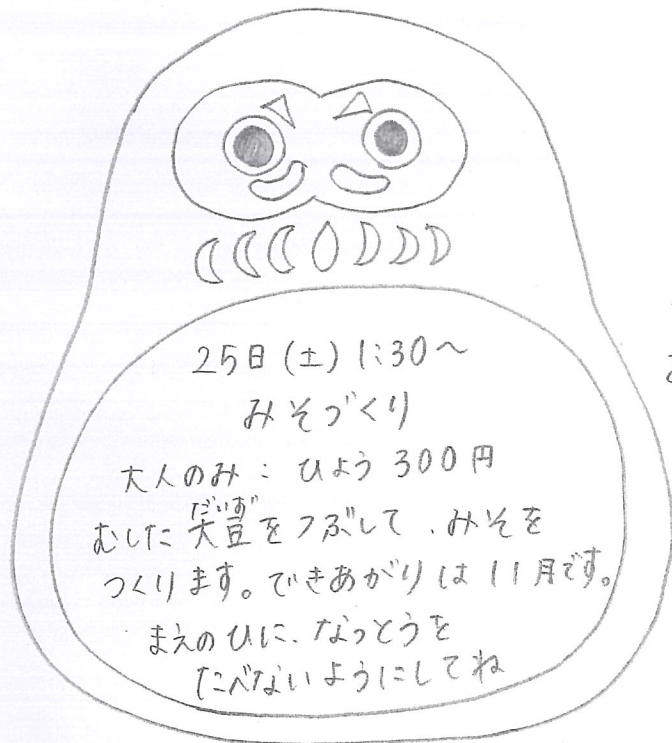 25日(土) 1:30～
みそづくり
大人のみ：ひよう 300円
むした 大豆をつぶして、みそを
だいず
つくります。できあがりは 11月です。
まえのひに、なっとうを
たべないようにしてね